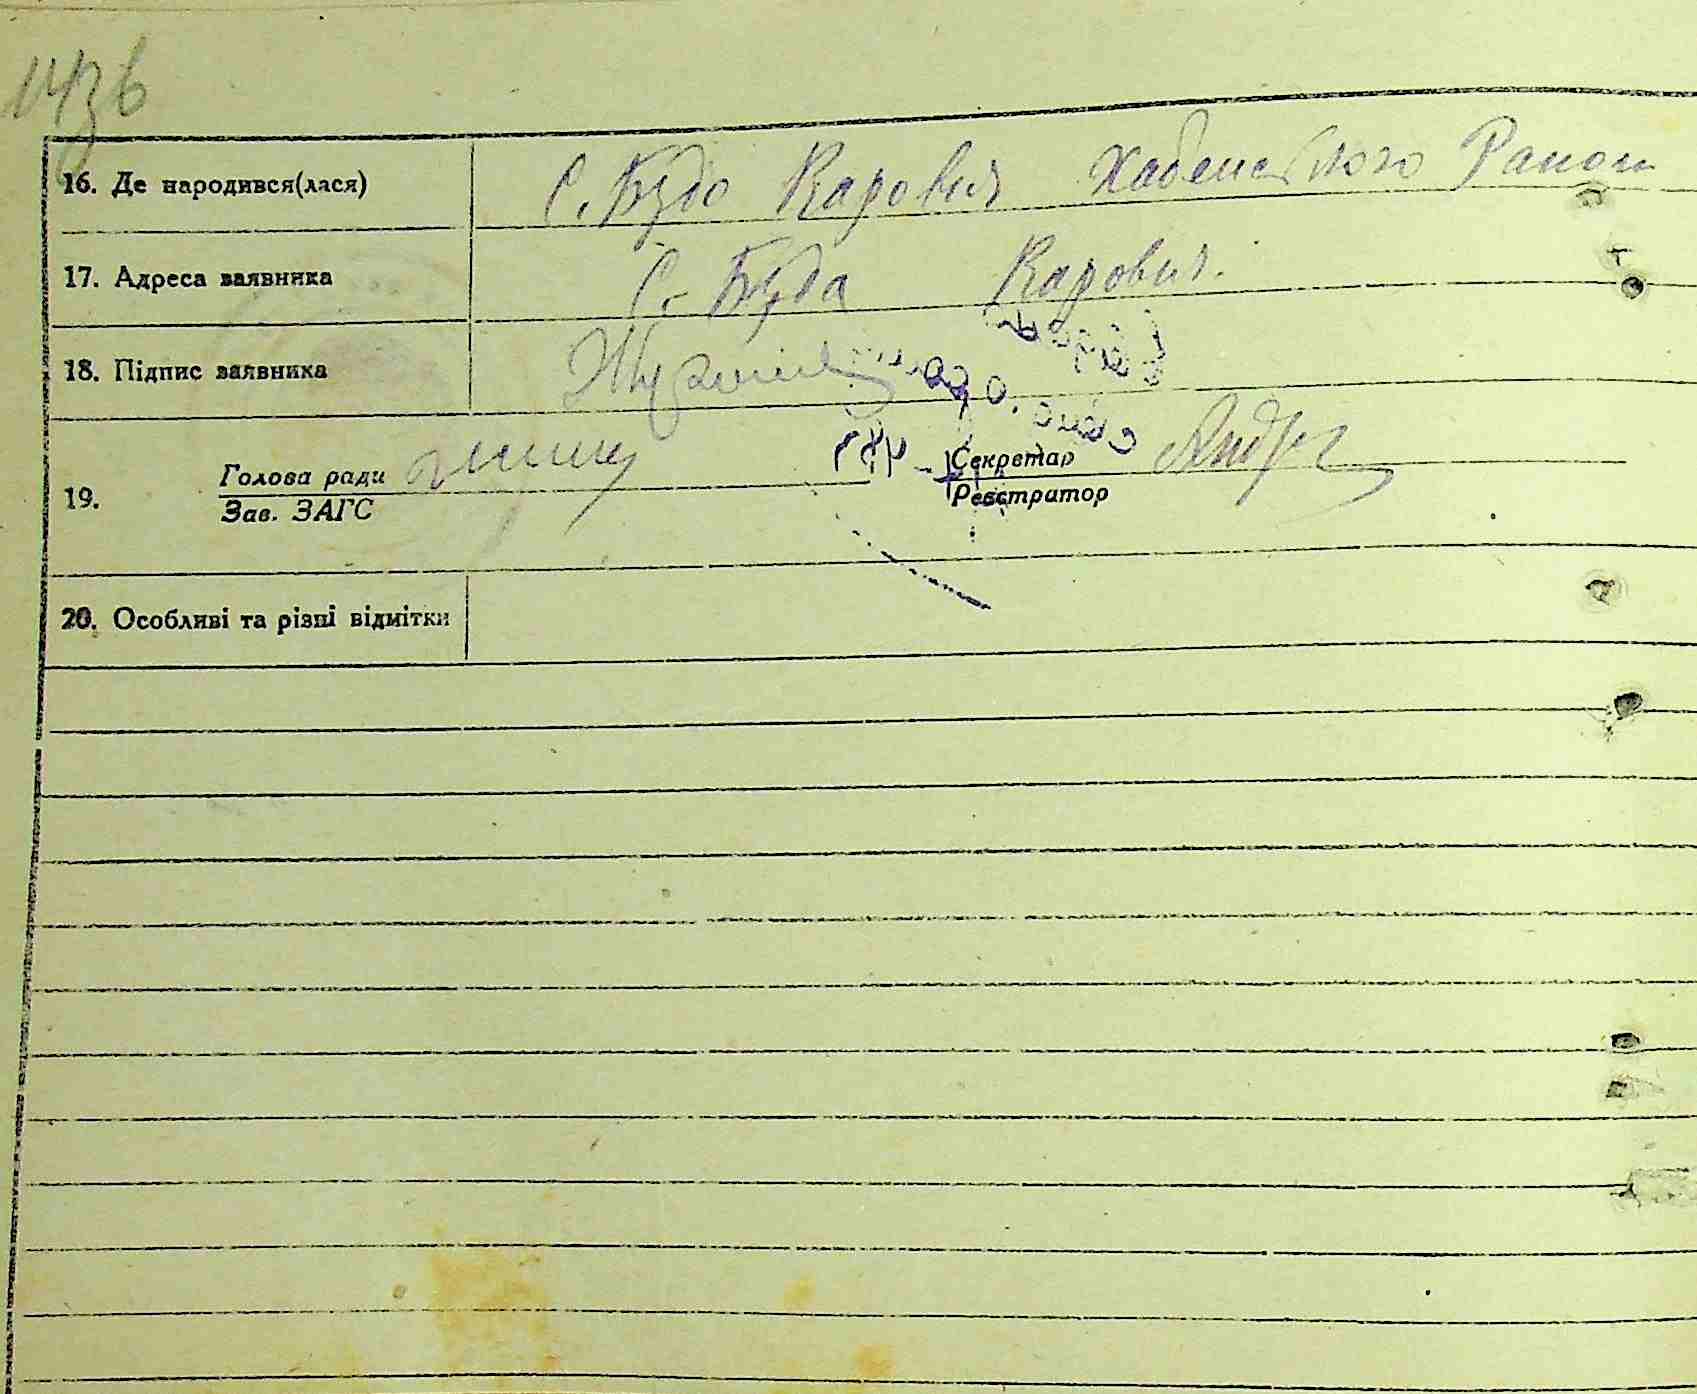 143б
16. Де народився(лася) С. Будо Варовичи Хабенського Район
17. Адреса заявника С. Буда Варовичі.
18. Підпис заявника
Голова ради Секретар
19.
Зав. ЗАГС Реєстратор
20. Особливі та різні відмітки